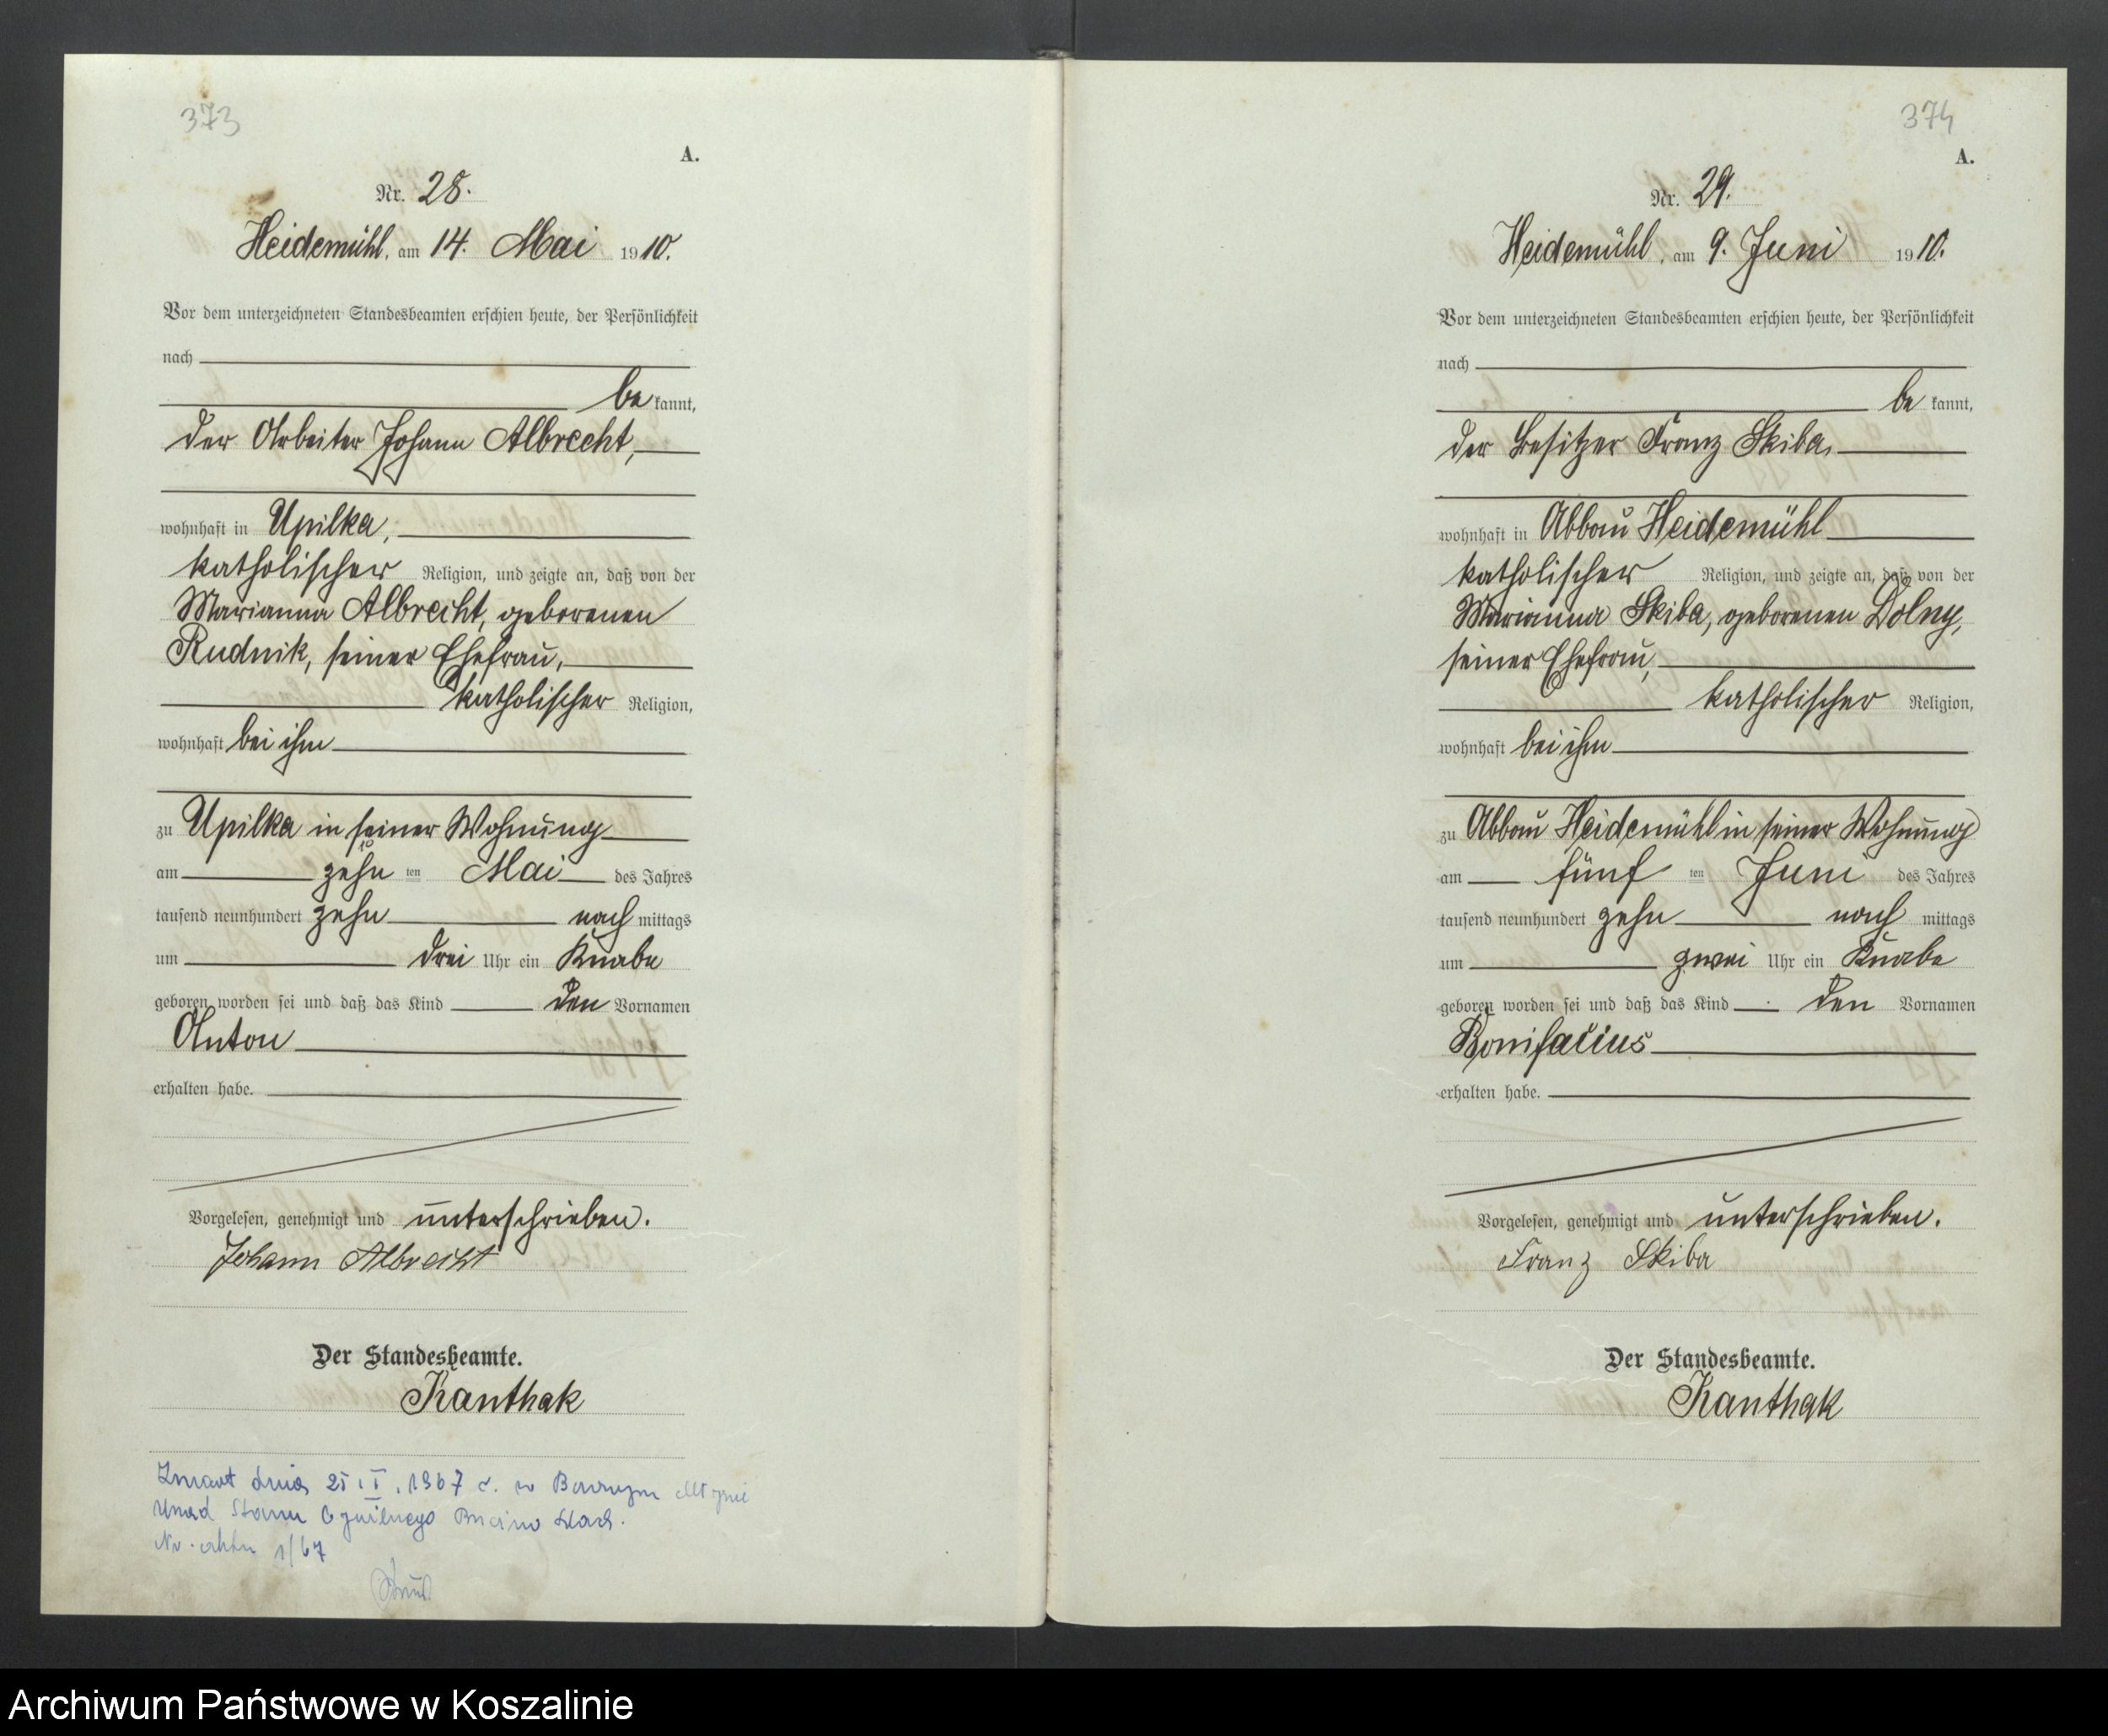 373
A.
Nr. 28.
Heidemühl, am 14. Mai 1910.
Vor dem unterzeichneten Standesbeamten erschien heute, der Persönlichkeit
nach
be kannt,
der Arbeiter Johann Albrecht,
wohnhaft in Upilka,
katholischer Religion, und zeigte an, daß von der
Marianna Albrecht, geborenen
Rudnik, seiner Ehefrau,
katholischer Religion,
wohnhaft bei ihm
zu Upilka in seiner Wohnung
am zehn ten Mai des Jahres
tausend neunhundert zehn nach mittags
um drei Uhr ein Knabe
geboren worden sei und daß das Kind den Vornamen
Anton
erhalten habe.
Vorgelesen, genehmigt und unterschrieben.
Johann Albrecht
Der Standesbeamte.
Kanthak
Zmarł dnia 25.I.1967 r. w
Urząd Stanu Cywilnego
Nr. aktu 1/67
374
A.
Nr. 29.
Heidemühl, am 9. Juni 1910.
Vor dem unterzeichneten Standesbeamten erschien heute, der Persönlichkeit
nach
be kannt,
der Besitzer Franz Skiba,
wohnhaft in Abbau Heidemühl
katholischer Religion, und zeigte an, daß von der
Marianna Skiba, geborenen Dolny,
seiner Ehefrau,
katholischer Religion,
wohnhaft bei ihm
zu Abbau Heidemühl in seiner Wohnung
am fünf ten Juni des Jahres
tausend neunhundert zehn nach mittags
um zwei Uhr ein Knabe
geboren worden sei und daß das Kind den Vornamen
Bonifacius
erhalten habe.
Vorgelesen, genehmigt und unterschrieben.
Franz Skiba
Der Standesbeamte.
Kanthak
Archiwum Państwowe w Koszalinie